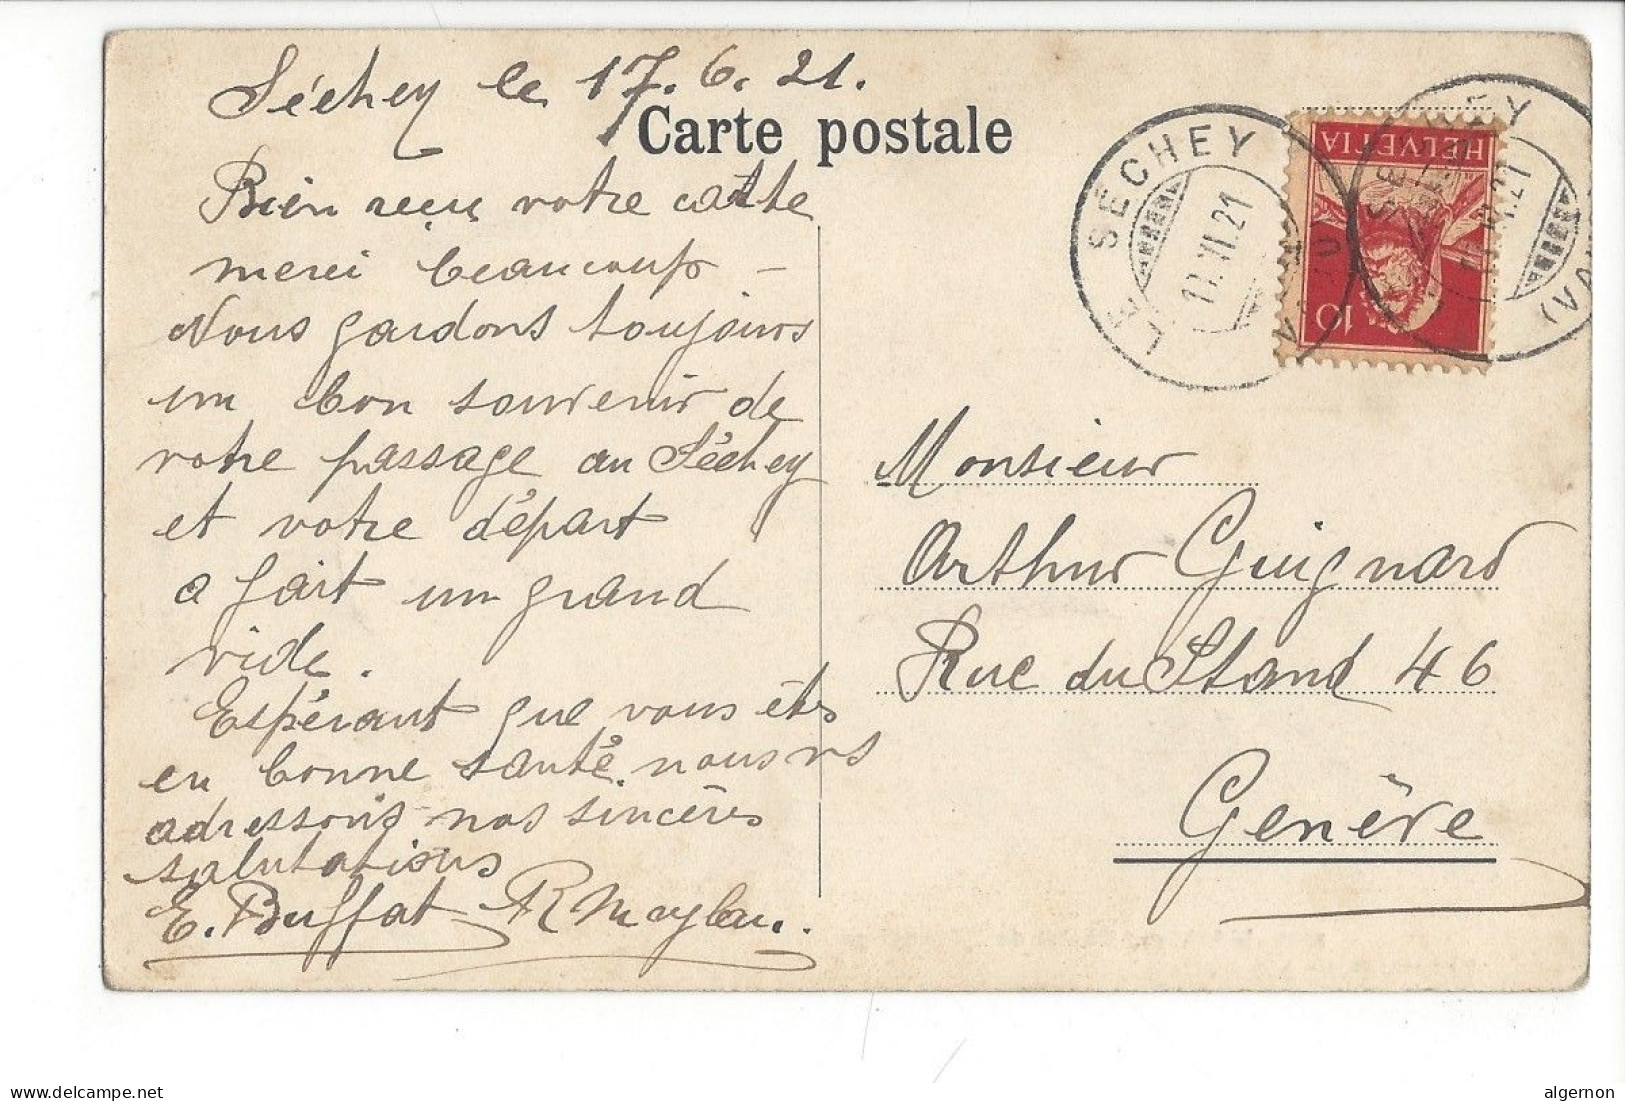 Séchey le 17.6.21.
Carte postale
Bien reçu votre carte
merci beaucoup –
Nous gardons toujours
un bon souvenir de
votre passage au Séchey
et votre départ
a fait un grand
vide.
Espérant que vous êtes
en bonne santé. nous vs
adressons nos sincères
salutations
E. Buffat RMeylan.
LE SÉCHEY
17.VI.21
HELVETIA
10
Monsieur
Arthur Guignard
Rue du Stand 46
Genève
www.delcampe.net
algernon